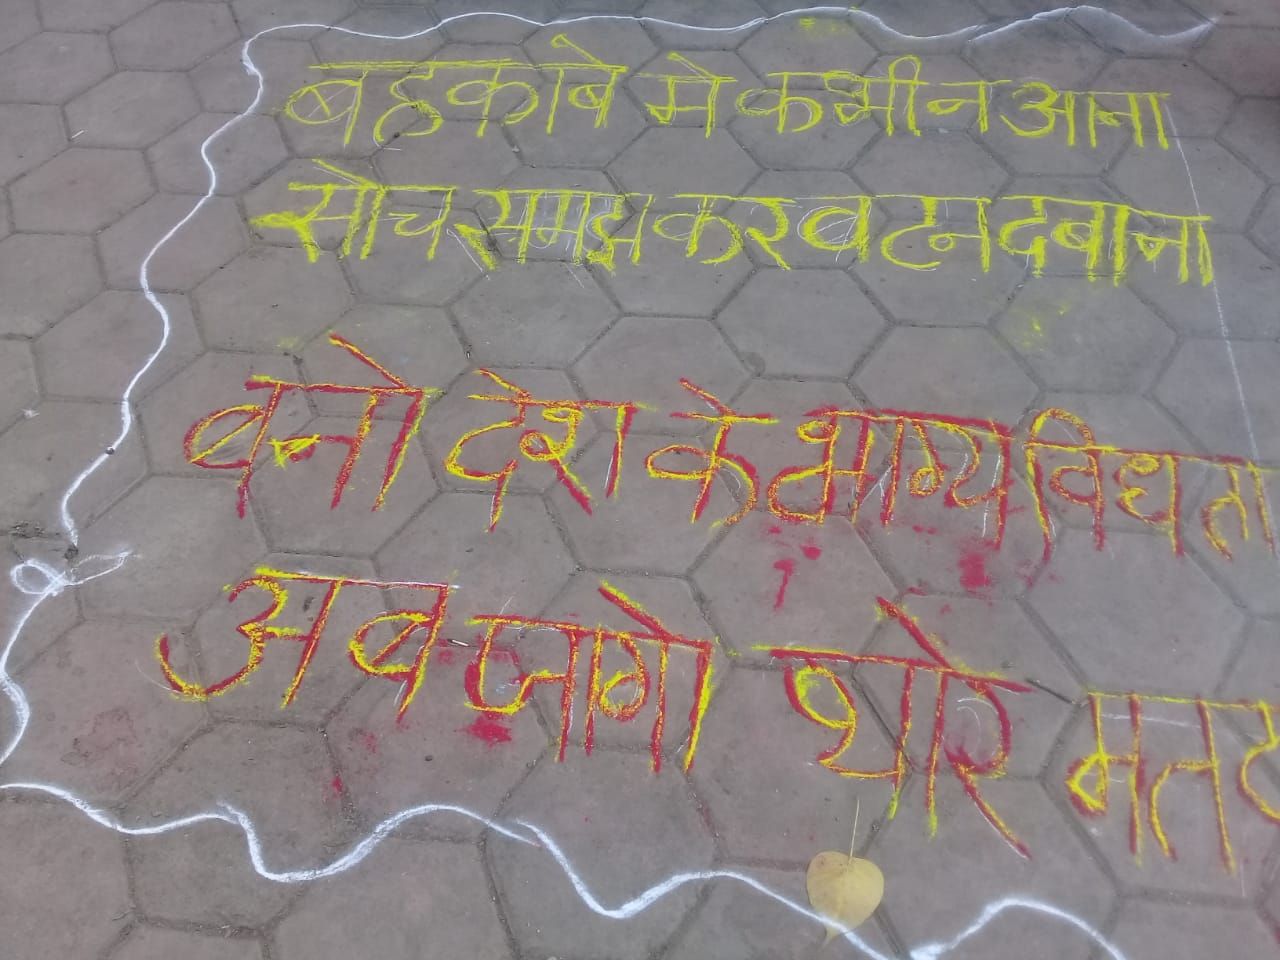 बहकाबे मे कभी न आना
सोच समझ कर बटन दबाना
बनो देश के भाग्य विधता
अब जागो प्यारे मत